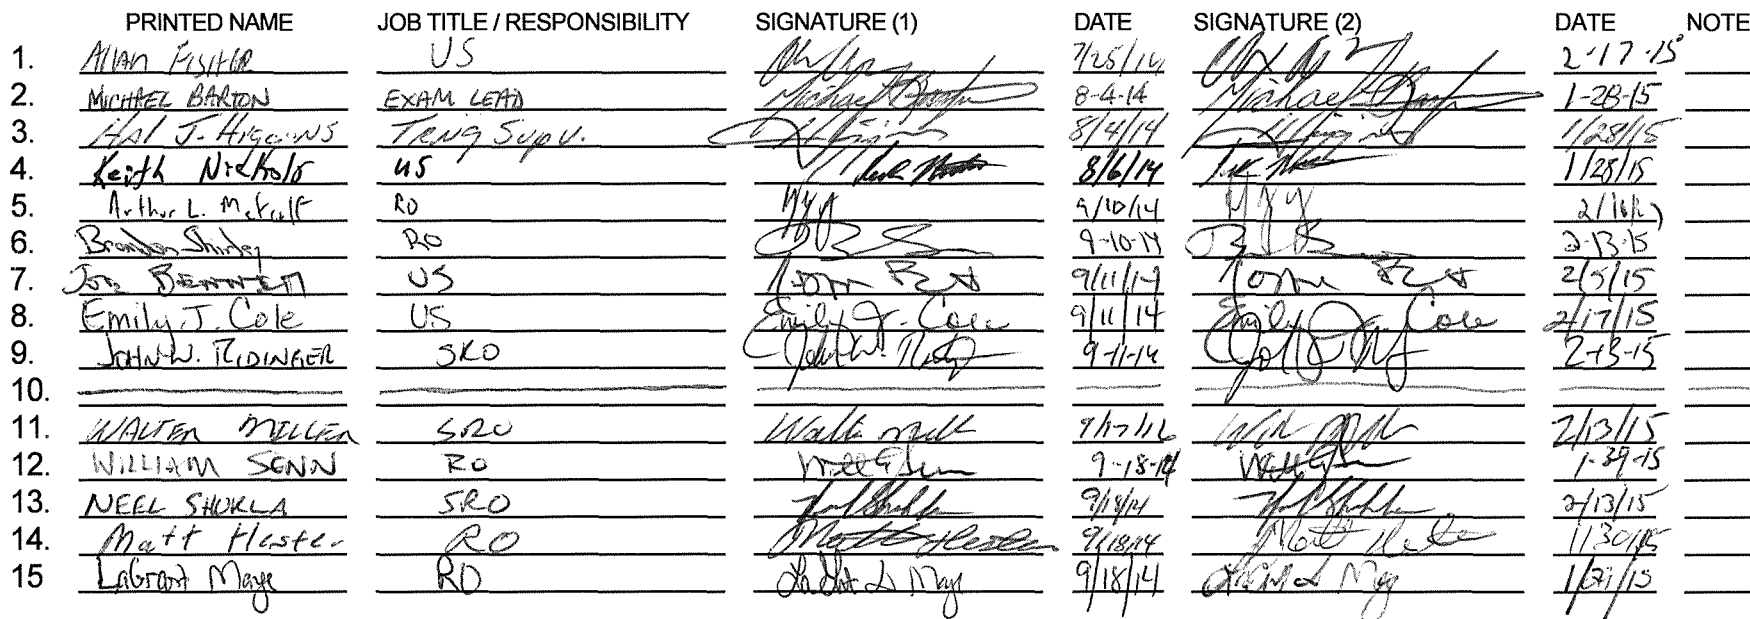 PRINTED NAME JOB TITLE / RESPONSIBILITY SIGNATURE (1) DATE SIGNATURE (2) DATE NOTE
1. Allan Fisher US 7/25/14 2-17-15
2. MICHAEL BARTON EXAM LEAD Michael Barton 8-4-14 Michael Barton 1-28-15
3. Hal J. Higgins Trng Supv. 8/4/14 1/28/15
4. Keith Nichols US 8/6/14 1/28/15
5. Arthur L. Metcalf RO 9/10/14
6. Brandon Shirley RO 9-10-14 2-13-15
7. US 9/11/14 2/5/15
8. Emily J. Cole US Emily J. Cole 9/11/14 Emily J. Cole 2/17/15
9. JOHN W. RIDINGER SRO 9-11-14 2-13-15
10.
11. WALTER MILLER SRO 2/13/15
12. WILLIAM SENN RO 9-18-14
13. NEEL SHUKLA SRO 9/18/14 2/13/15
14. Matt Hester RO Matt Hester 9/18/14 Matt Hester 1/30/15
15 LaGrant Maye RO 9/18/14